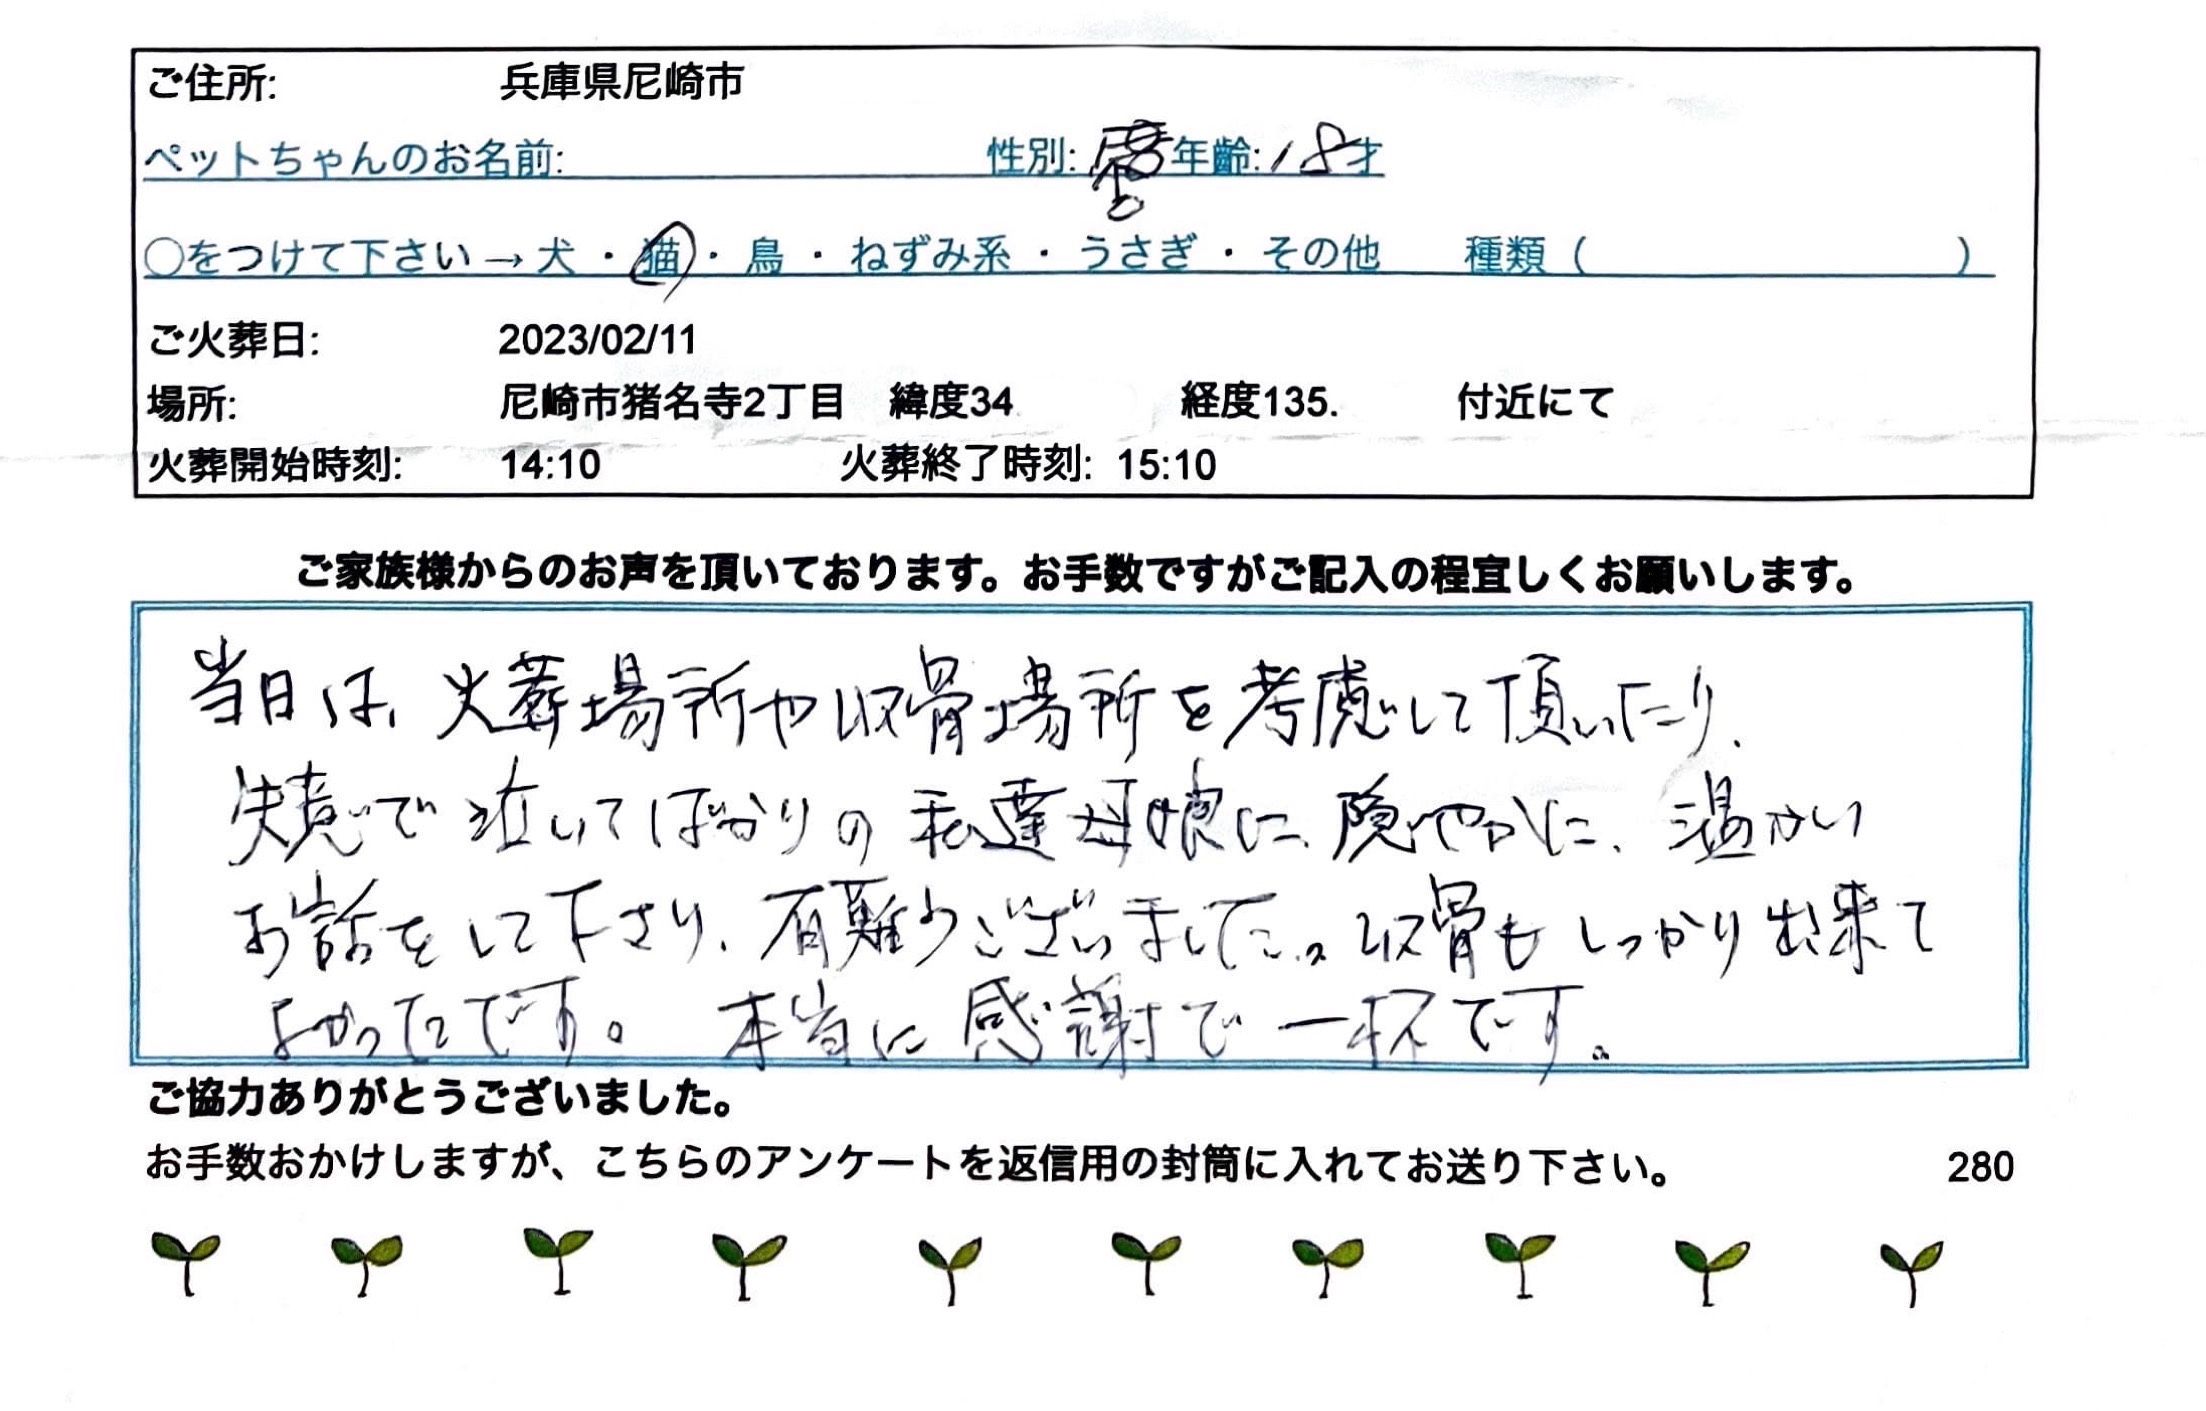 ご住所: 兵庫県尼崎市
ペットちゃんのお名前: 性別: 年齢: 18才
○をつけて下さい→犬・猫・鳥・ねずみ系・うさぎ・その他 種類( )
ご火葬日: 2023/02/11
場所: 尼崎市猪名寺2丁目 緯度34 経度135. 付近にて
火葬開始時刻: 14:10 火葬終了時刻: 15:10
ご家族様からのお声を頂いております。お手数ですがご記入の程宜しくお願いします。
当日は、火葬場所や収骨場所を考慮して頂いたり、
失意で泣いてばかりの私達母娘に、隠やかに、温かい
お話をして下さり、有難うございました。収骨もしっかり出来て
よかったです。本当に感謝で一杯です。
ご協力ありがとうございました。
お手数おかけしますが、こちらのアンケートを返信用の封筒に入れてお送り下さい。 280